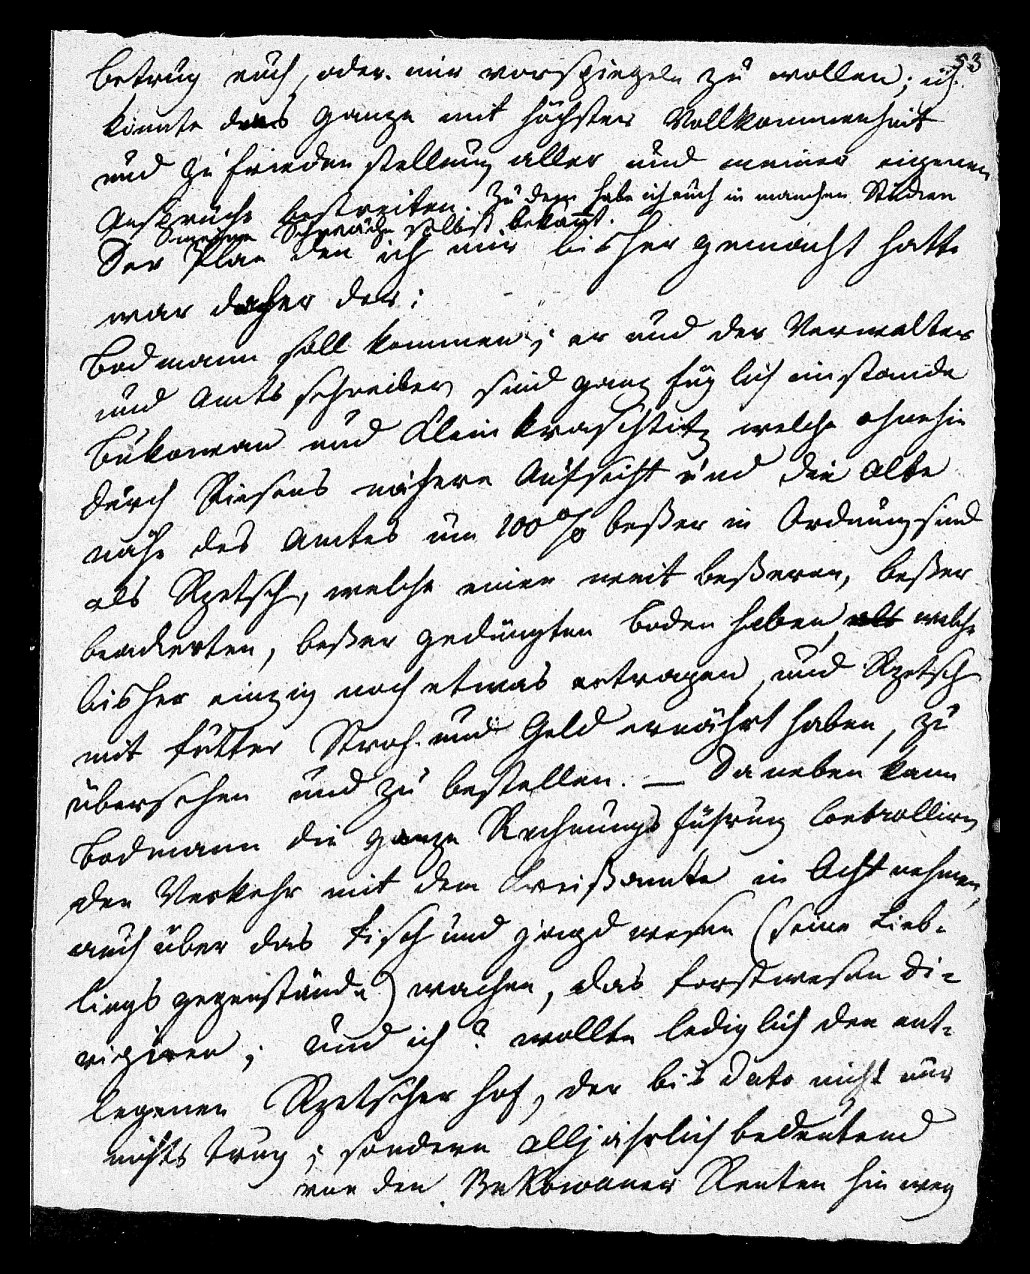 53
Betrug euch, oder mir vorspiegeln zu wollen; ich
könnte das Ganze mit höchster Vollkommenheit
und Zufriedenstellung aller und meiner eigenen
Ansprüche bestreiten. Zu dem habe ich euch in manchen Stücken
meine Schwäche selbst bekannt.
Der Plan den ich mir bisher gemacht hatte
war daher der:
Bodmann soll kommen; er und der Verwalter
und Amtsschreiber sind ganz füglich im stande
Bukowan und Klein Kraschtitz welche ohnehin
durch Riesens nähere Aufsicht und die
Nähe des Amtes um 100% beßer in Ordnung sind
als Rzetsch, welche einen weit beßeren, beßer
beackerten, beßer gedüngten Boden haben, welche
bisher einzig noch etwas ertragen, und Rzetsch
mit Futter Stroh und Geld ernährt haben, zu
übersehen und zu bestellen. — Daneben kann
Bodmann die ganze Rechnungsführung
den Verkehr mit dem Kreißamte in Acht nehmen,
auch über das Fisch und Jagdwesen (seine Lieb-
lingsgegenstände) wachen, das Forstwesen di-
rigiren; und ich? wollte lediglich den ent-
legenen Rzetscher Hof, der bis dato nicht nur
nichts trug; sondern alljährlich bedeutend
von den Bukowaner Renten hin weg